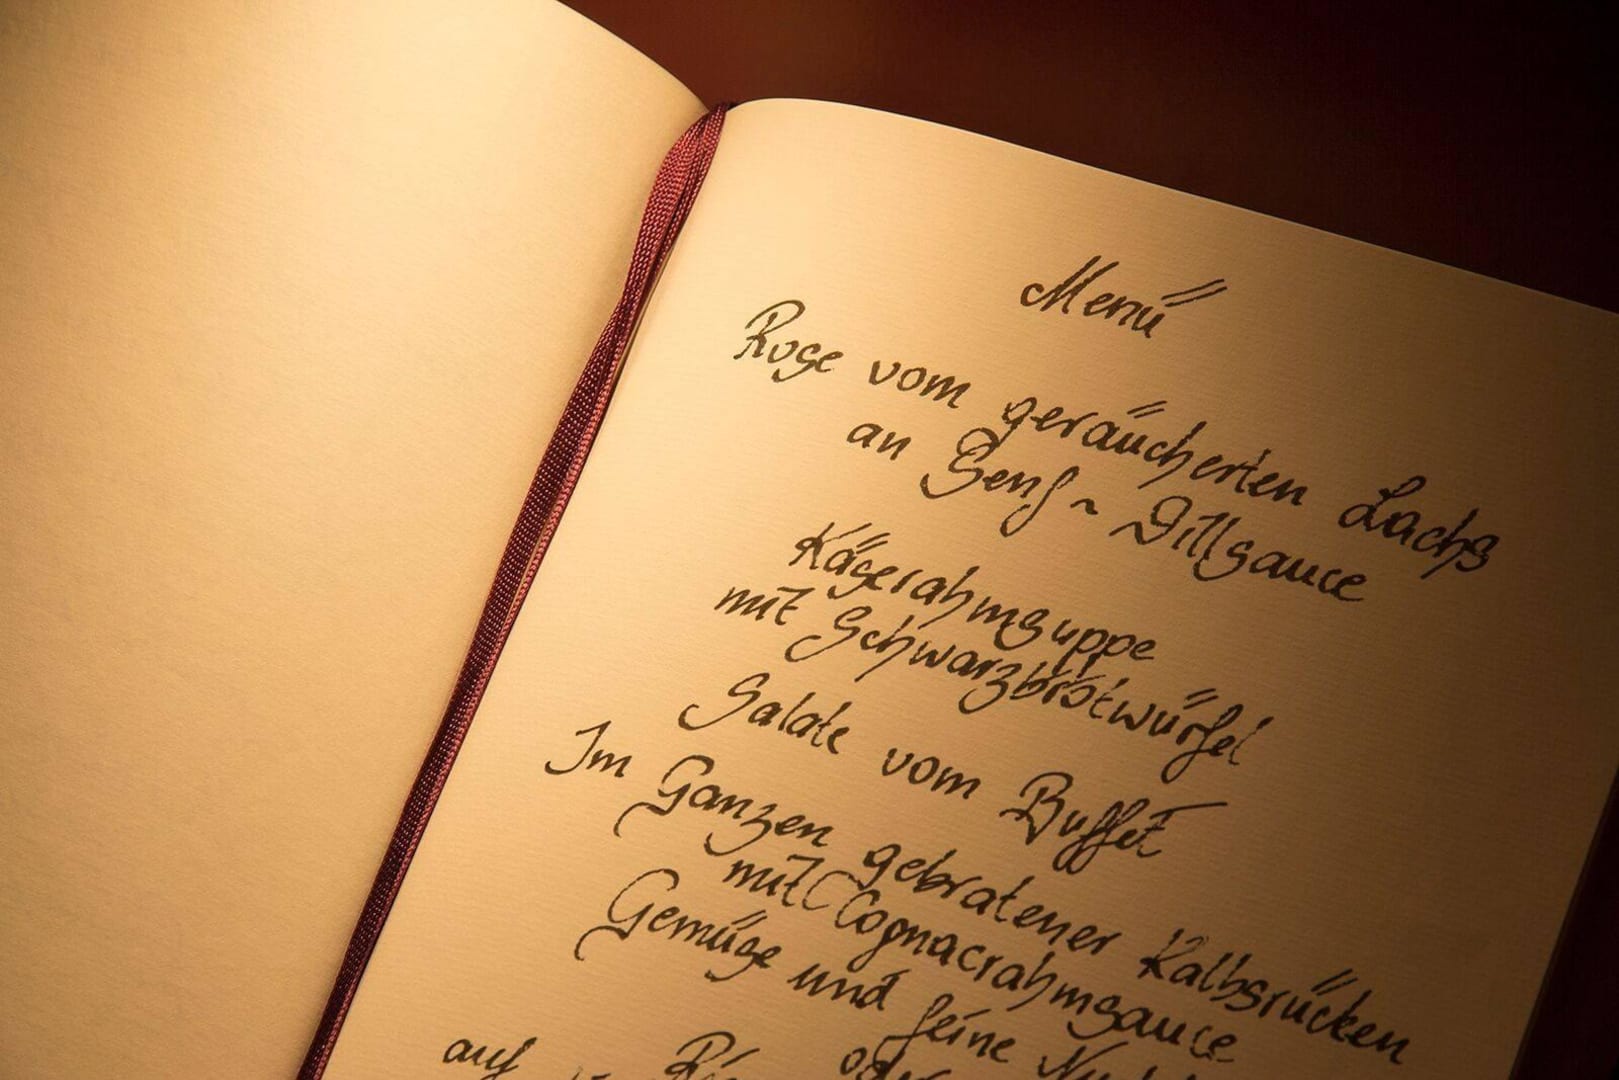 Menü
Rose vom geräucherten Lachs
an Senf ~ Dillsauce
Käserahmsuppe
mit Schwarzbrotwürfel
Salate vom Buffet
Im Ganzen gebratener Kalbsrücken
mit Cognacrahmsauce
Gemüse und feine
auf oder